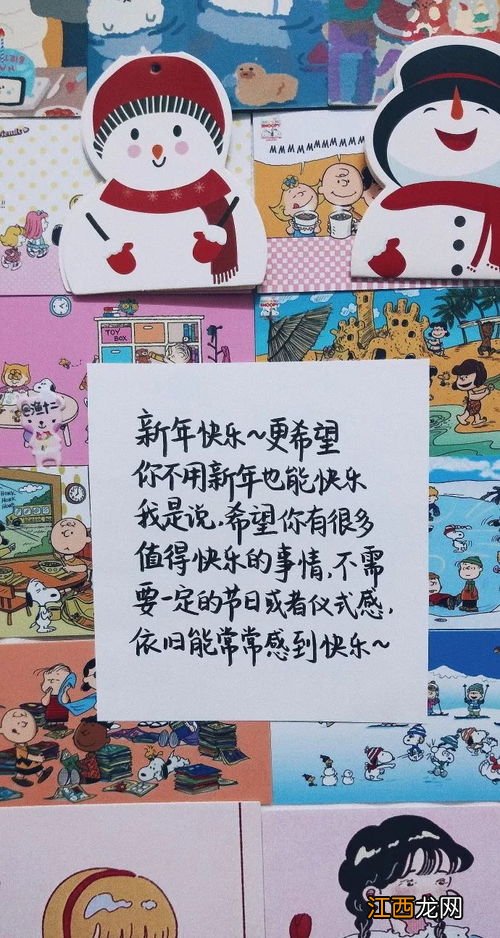 SNOOPY
MMMMMMMMM
TOY
BOX
SNOOPY
@渔十二
新年快乐~更希望
你不用新年也能快乐
我是说,希望你有很多
值得快乐的事情,不需
要一定的节日或者仪式感,
依旧能常常感到快乐~
江西龙网